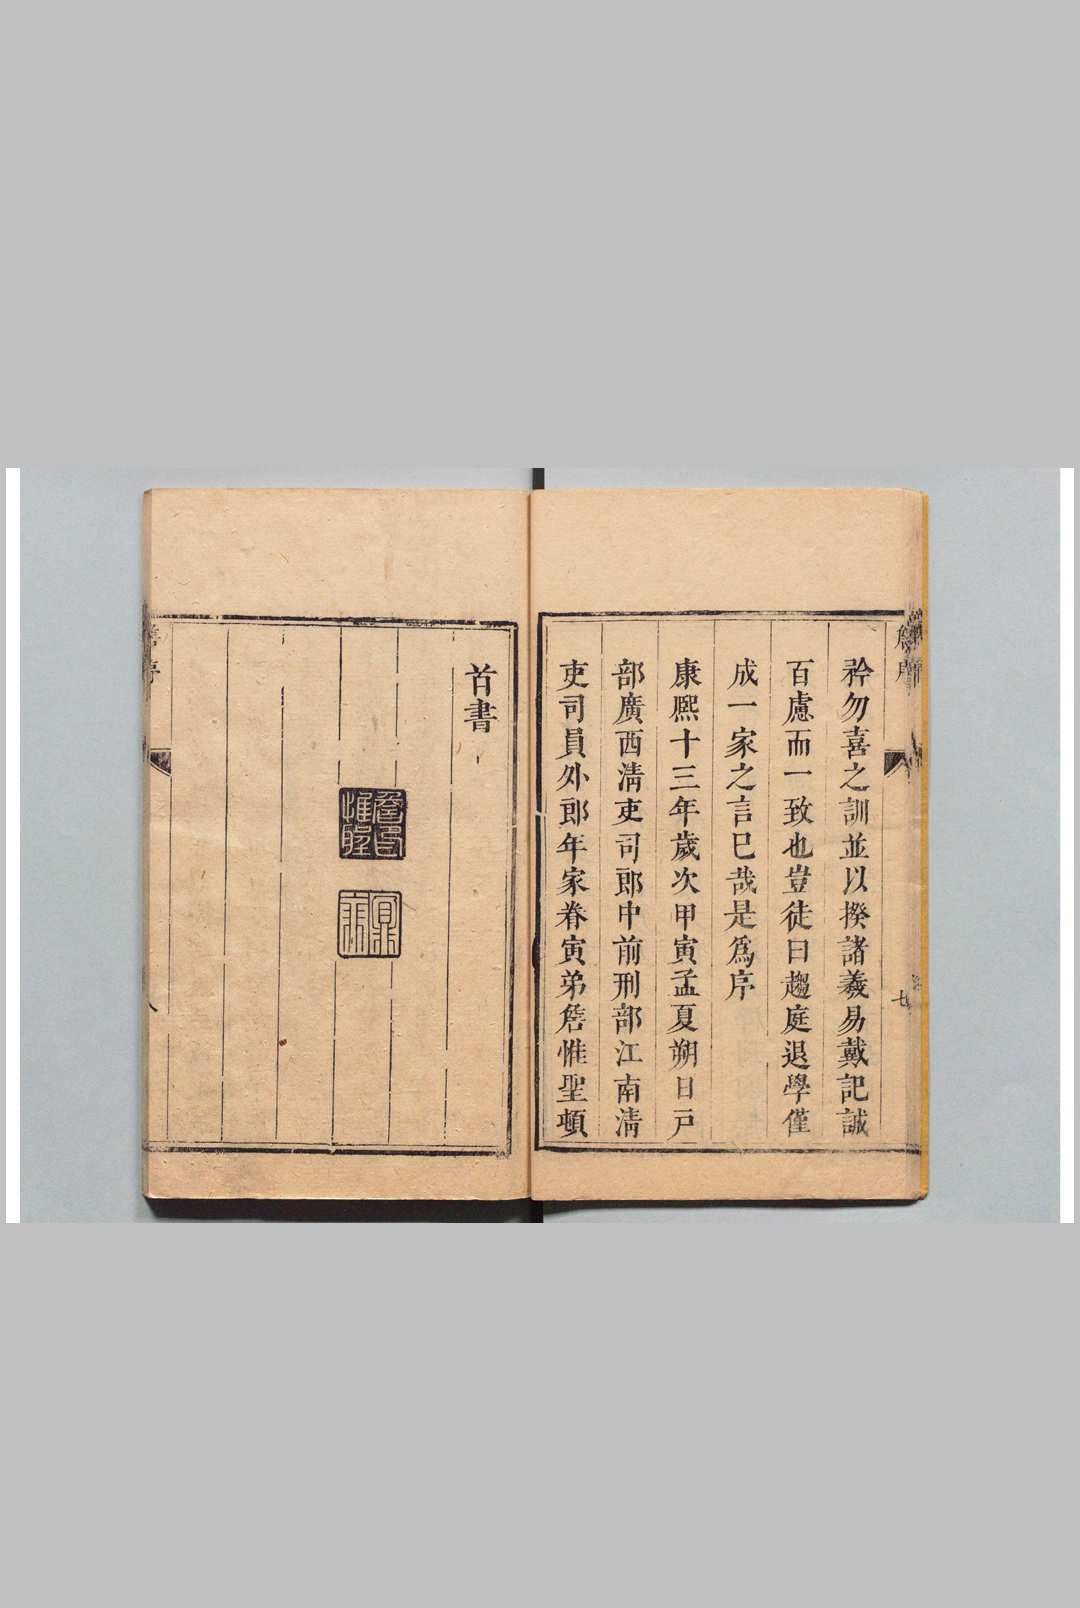 矜勿喜之訓並以揆諸羲易戴記誠
百慮而一致也豈徒曰趨庭退學僅
成一家之言已哉是爲序
康熙十三年歲次甲寅孟夏朔日戸
部廣西淸吏司郎中前刑部江南淸
吏司員外郎年家眷寅弟詹惟聖頓
首書
七
詹印惟聖
八